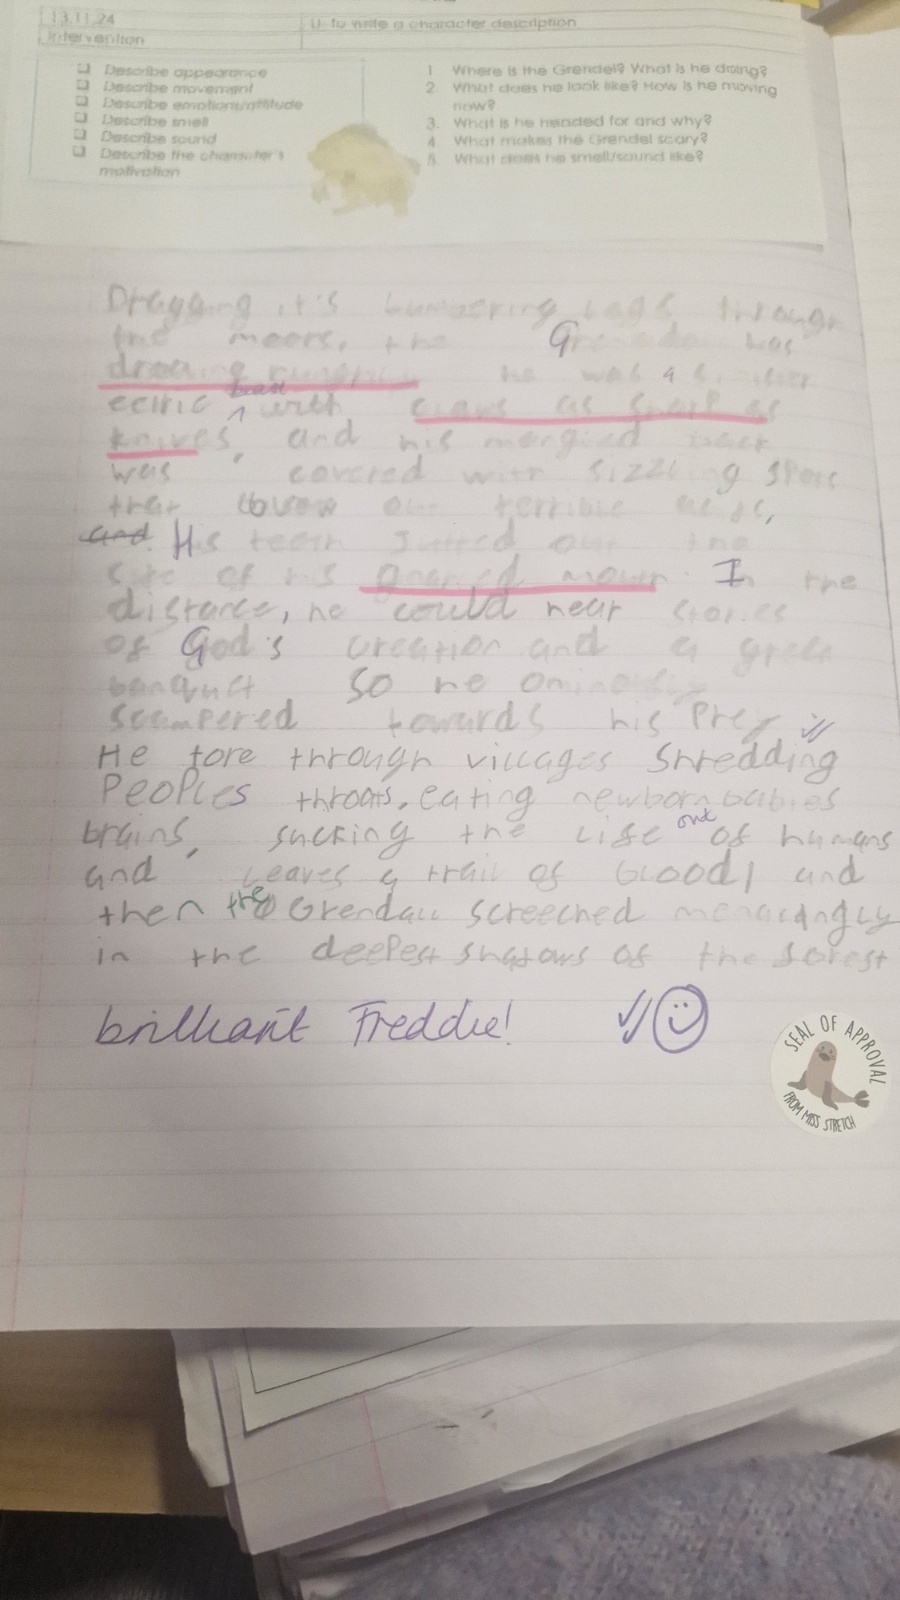 13.11.24
Intervention
LI: to write a character description
Describe appearance
Describe movement
Describe emotions/attitude
Describe smell
Describe sound
Describe the character's
motivation
1 Where is the Grendel? What is he doing?
2. What does he look like? How is he moving
now?
3. What is he headed for and why?
4 What makes the Grendel scary?
5. What does he smell/sound like?
Dragging it's lumbering legs through
the moors, the was
he was a sinister
beast
eciric with claws as sharp as
knives, and his back
was covered with sizzling spots
that out terrible
and. His teeth Jutted out the
site of his mouth. In the
distance, he could hear stories
of God's creation and a great
banquet so he
scampered towards his Prey
He tore through villages Shredding
Peoples throats, eating newborn babies
out
brains, sucking the life of humans
and Leaves a trail of blood and
then the Grendall screeched menacingly
in the deepest shadows of the forest
brilliant Freddie!
SEAL OF APPROVAL
FROM MISS STRETCH